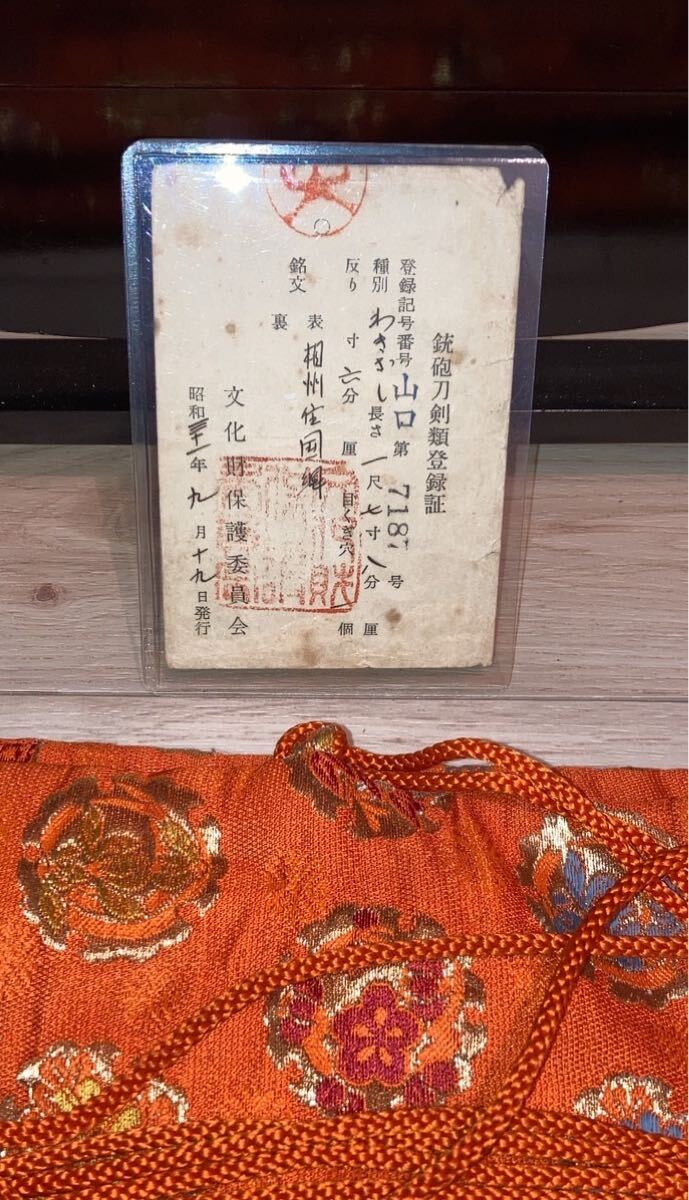 銃砲刀剣類登録証
登録記号番号 山口 第 7187 号
種別 わきざし 長さ 一尺七寸八分 厘
反り 寸 六分 厘 目くぎ穴 個
銘文 表 相州住国
裏
昭和三十一年九月十九日発行
文化財保護委員会